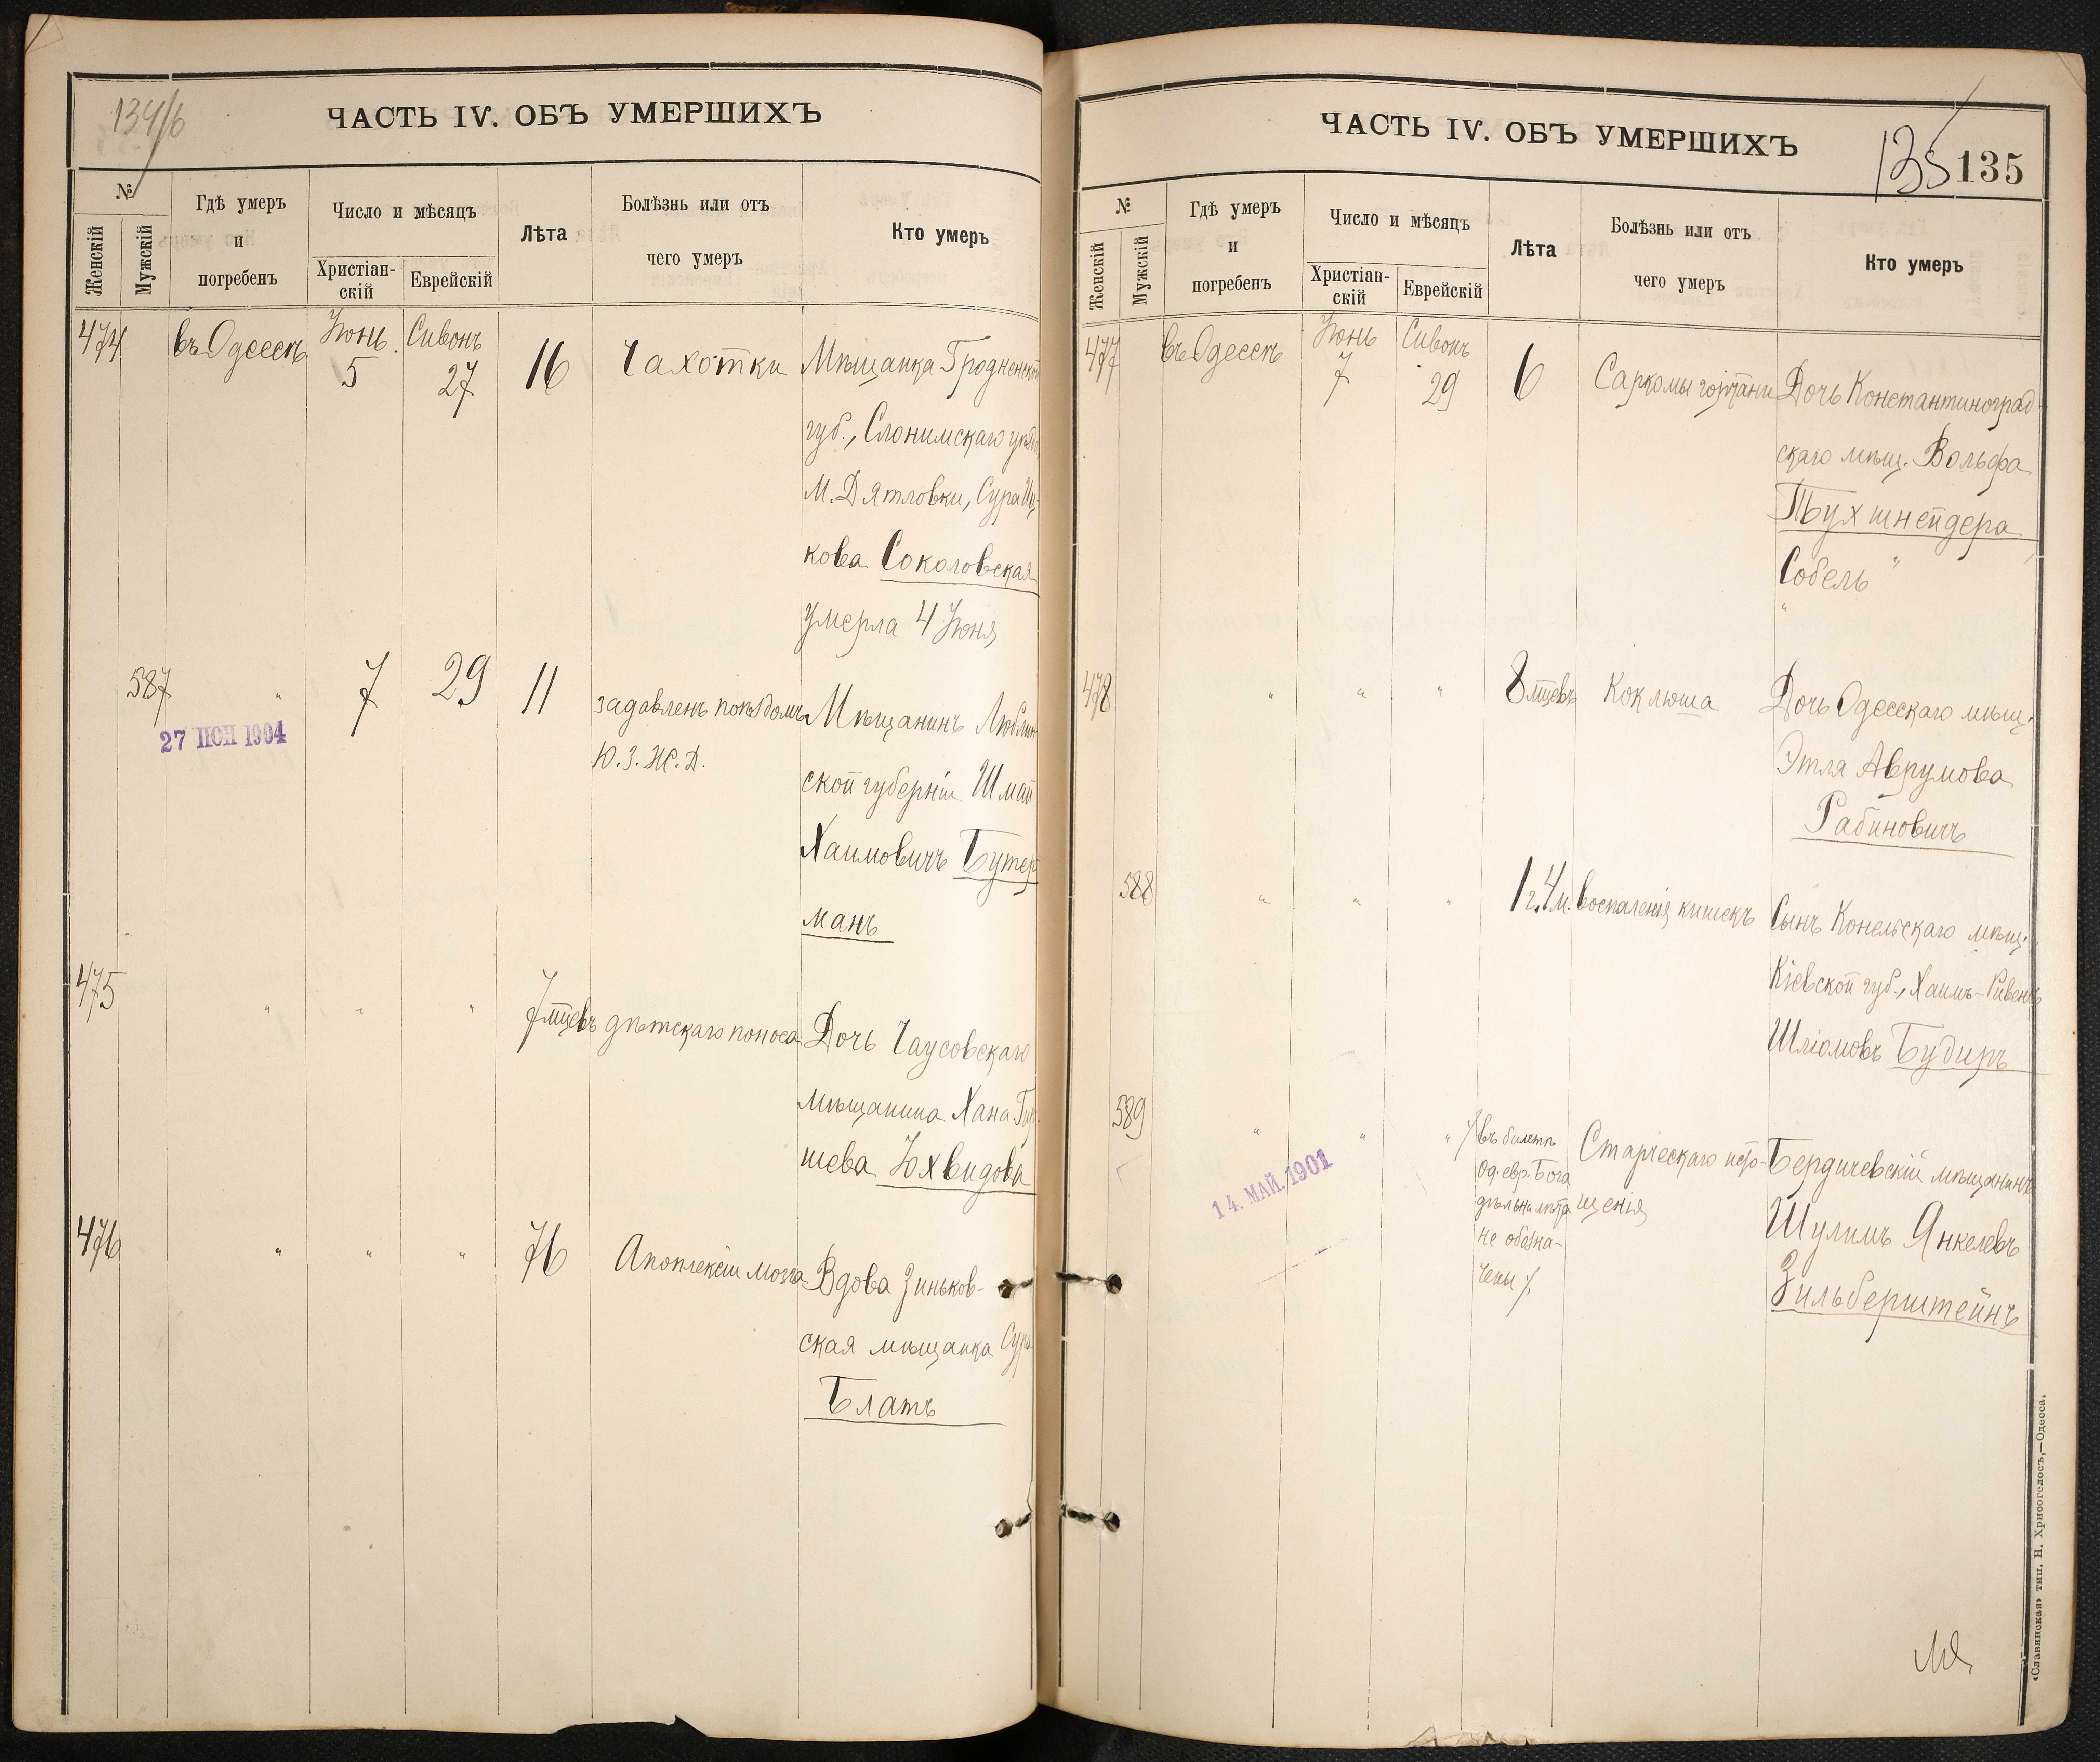 134/б
ЧАСТЬ IV. ОБЪ УМЕРШИХЪ
№
Женскій
Мужскій
Гдѣ умеръ
и
погребенъ
Число и мѣсяцъ
Христіан-
скій
Еврейскій
Лѣта
Болѣзнь или отъ
чего умеръ
Кто умеръ
474
въ Одессѣ
Іюнь
5
Сивонъ
27
16
Чахотки
Мѣщанка Гродненской
губ., Слонимскаго уѣзда
М. Дятловки, Сура Иц-
кова Соколовская
умерла 4 Іюня
587
"
27 ІЮН 1904
7
29
11
задавленъ поѣздомъ
Ю.З.Ж.Д.
Мѣщанинъ Люблин-
ской губерніи Шмай
Хаимовичъ Бутер
манъ
475
"
"
"
7 мцевъ
дѣтскаго поноса
Дочь Чаусовскаго
мѣщанина Хана
шева Юхвидова
476
"
"
"
76
Апоплексіи мозга
Вдова Зиньков-
ская мѣщанка Сура
Блатъ
ЧАСТЬ IV. ОБЪ УМЕРШИХЪ
135
135
№
Женскій
Мужскій
Гдѣ умеръ
и
погребенъ
Число и мѣсяцъ
Христіан-
скій
Еврейскій
Лѣта
Болѣзнь или отъ
чего умеръ
Кто умеръ
477
въ Одессѣ
Іюнь
7
Сивонъ
29
6
Саркомы гортани
Дочь Константиноград-
скаго мѣщ. Вольфа
Тухшнейдера
Собель
478
"
"
"
8 мцевъ
Коклюша
Дочь Одесскаго мѣщ.
Этля Аврумова
Рабиновичъ
588
"
"
"
1 г. 4 м.
воспаленія кишекъ
Сынъ Конельскаго мѣщ.
Кіевской губ., Хаимъ-Рувенъ
Шліомовъ Будиръ
589
"
14. МАЙ. 1901
"
"
/въ билетѣ
Од. евр. Бога
дѣльни лѣта
не обозна-
чены/.
Старческаго исто-
щенія
Бердичевскій мѣщанинъ
Шулимъ Янкелевъ
Зильберштейнъ
«Славянская» тип. Н. Хрисогелосъ,—Одесса.